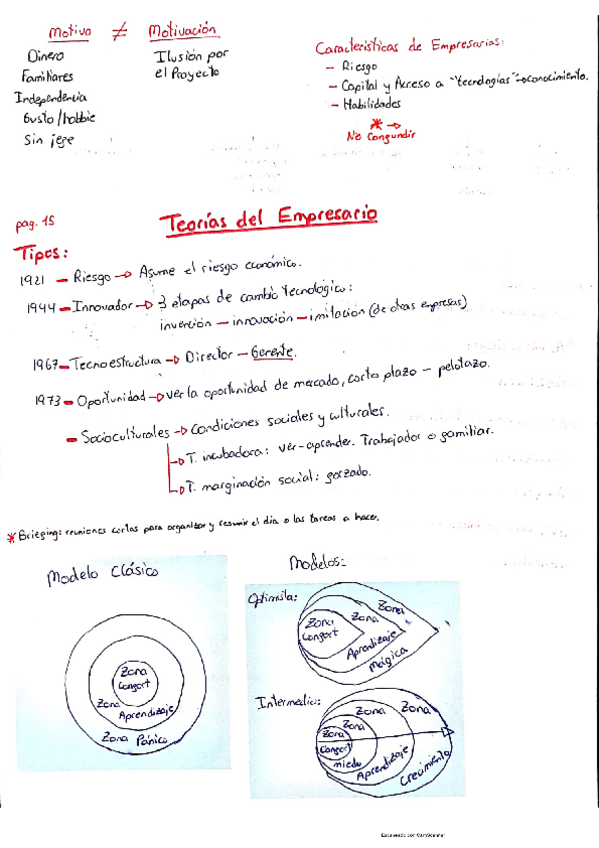 Motivo ≠ Motivación
Dinero
Familiares
Independencia
Gusto/hobbie
Sin jefe
Ilusión por
el Proyecto
Características de Empresarias:
- Riesgo
- Capital y Acceso a "tecnologías" → conocimiento.
- Habilidades
* →
No confundir
pag. 15
Teorías del Empresario
Tipos:
1921 - Riesgo → Asume el riesgo económico.
1944 - Innovador → 3 etapas de cambio tecnológico:
invención - innovación - imitación (de otras empresas)
1967 - Tecnoestructura → Director - Gerente.
1973 - Oportunidad → ver la oportunidad de mercado, corto plazo - pelotazo.
- Socioculturales → Condiciones sociales y culturales.
→ T. incubadora: ver-aprender. Trabajador o familiar.
→ T. marginación social: forzado.
* Briefing: reuniones cortas para organizar y resumir el día o las tareas a hacer.
Modelo Clásico
Zona
Confort
Zona
Aprendizaje
Zona Pánico
Modelos:
Optimista:
Zona
Confort
Zona
Aprendizaje
Zona
Mágica
Intermedio:
Zona
Confort
Zona
miedo
Zona
Aprendizaje
Zona
Crecimiento
Escaneado por CamScanner